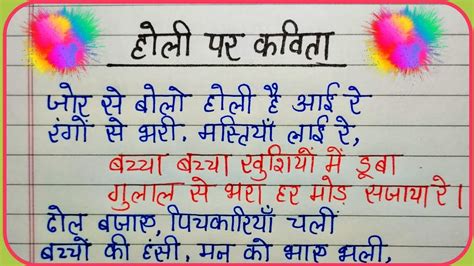 होली पर कविता
जोर से बोलो होली है आई रे
रंगों से भरी, मस्तियाँ लाई रे,
बच्चा बच्चा खुशियों में डूबा
गुलाल से भरा हर मोड़ सजाया रे।
ढोल बजाए, पिचकारियाँ चलीं
बच्चों की हंसी, मन को भाए भली,